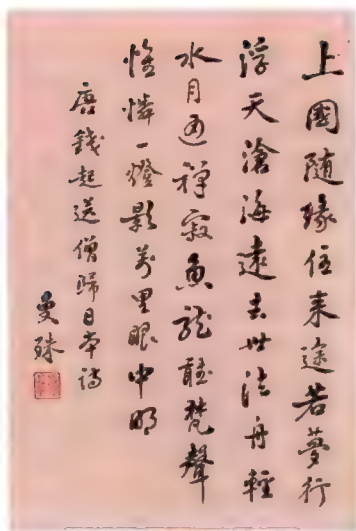 上國隨緣住來途若夢行
浮天滄海遠去世法舟輕
水月通禪寂魚龍聽梵聲
惟憐一燈影萬里眼中明
唐錢起送僧歸日本詩
曼殊